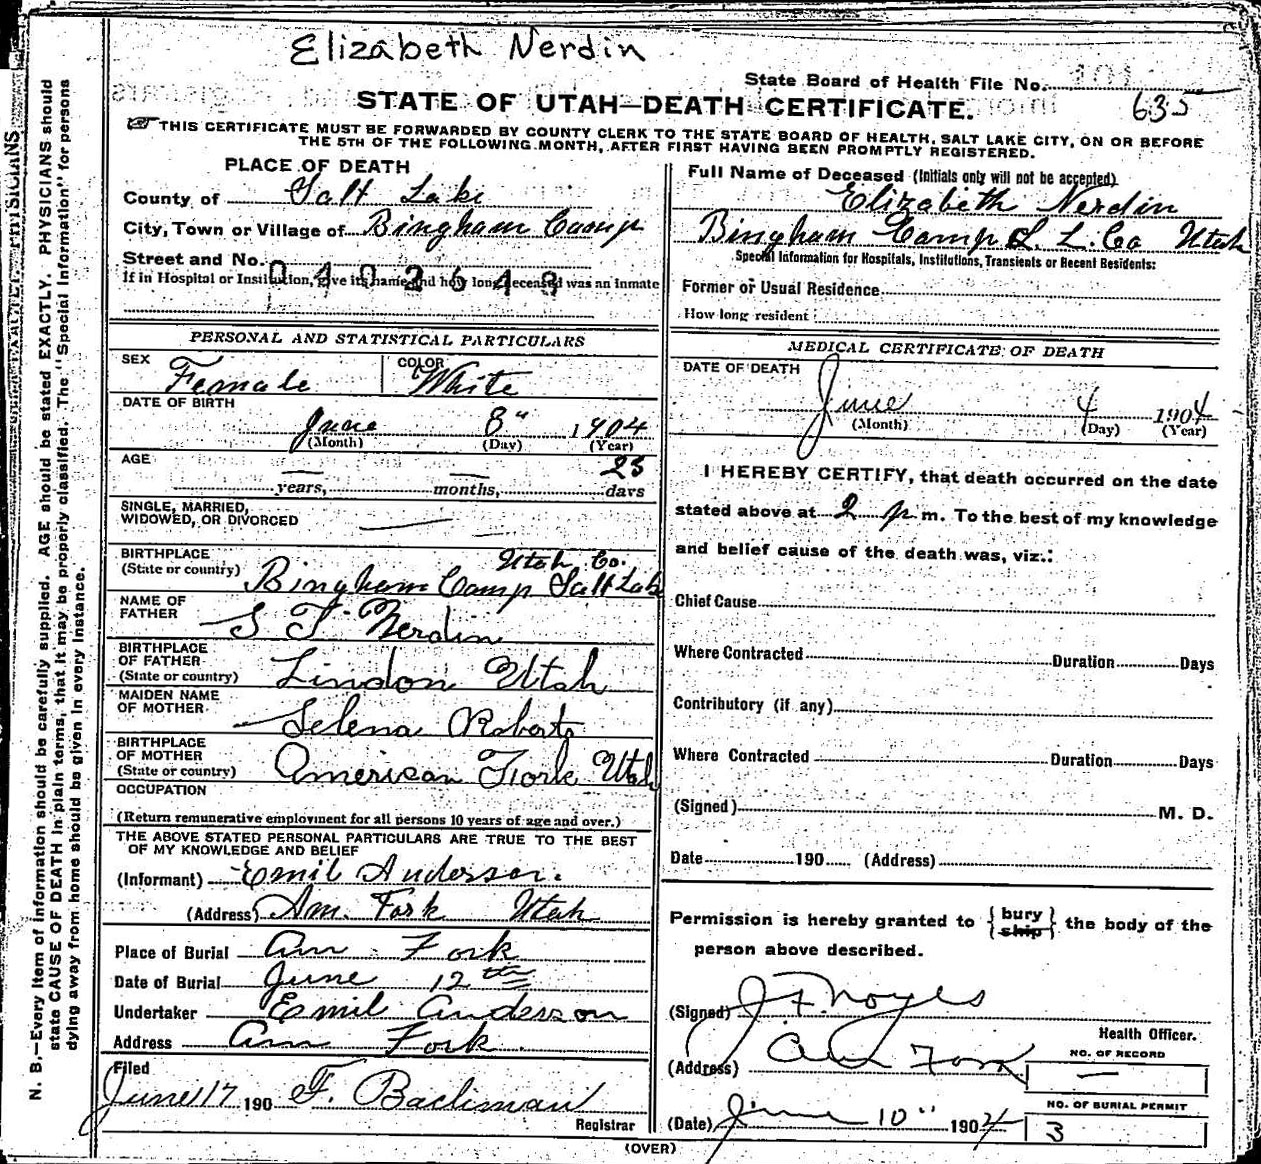 Elizabeth Nerdin
State Board of Health File No. 635
STATE OF UTAH—DEATH CERTIFICATE.
THIS CERTIFICATE MUST BE FORWARDED BY COUNTY CLERK TO THE STATE BOARD OF HEALTH, SALT LAKE CITY, ON OR BEFORE
THE 5TH OF THE FOLLOWING MONTH, AFTER FIRST HAVING BEEN PROMPTLY REGISTERED.
N. B.—Every item of information should be carefully supplied. AGE should be stated EXACTLY. PHYSICIANS should
state CAUSE OF DEATH in plain terms, that it may be properly classified. The "Special Information" for persons
dying away from home should be given in every instance.
PLACE OF DEATH
County of Salt Lake
City, Town or Village of Bingham Camp
Street and No.
0402648
If in Hospital or Institution, give its name and how long deceased was an inmate
PERSONAL AND STATISTICAL PARTICULARS
SEX Female COLOR White
DATE OF BIRTH
June 8" 1904
(Month) (Day) (Year)
AGE — years, — months, 23 days
SINGLE, MARRIED,
WIDOWED, OR DIVORCED —
BIRTHPLACE Utah Co.
(State or country) Bingham Camp Salt Lake
NAME OF
FATHER S T Nerdin
BIRTHPLACE
OF FATHER
(State or country) Lindon Utah
MAIDEN NAME
OF MOTHER Selena Roberts
BIRTHPLACE
OF MOTHER
(State or country) American Fork Utah
OCCUPATION
(Return remunerative employment for all persons 10 years of age and over.)
THE ABOVE STATED PERSONAL PARTICULARS ARE TRUE TO THE BEST
OF MY KNOWLEDGE AND BELIEF
(Informant) Emil Anderson.
(Address) Am. Fork Utah
Place of Burial Am Fork
Date of Burial June 12th
Undertaker Emil Anderson
Address Am Fork.
Filed
June 17 190 F. Bachman
Registrar
Full Name of Deceased (Initials only will not be accepted)
Elizabeth Nerdin
Bingham Camp S. L. Co Utah
Special Information for Hospitals, Institutions, Transients or Recent Residents:
Former or Usual Residence
How long resident
MEDICAL CERTIFICATE OF DEATH
DATE OF DEATH
June 4 1904
(Month) (Day) (Year)
I HEREBY CERTIFY, that death occurred on the date
stated above at 2 p m. To the best of my knowledge
and belief cause of the death was, viz.:
Chief Cause
Where Contracted Duration Days
Contributory (if any)
Where Contracted Duration Days
(Signed) M. D.
Date 190 (Address)
Permission is hereby granted to { bury ship } the body of the
person above described.
(Signed) J F Noyes
Health Officer.
(Address) Am Fork
NO. OF RECORD
—
(Date) June 10" 1904
NO. OF BURIAL PERMIT
3
(OVER)